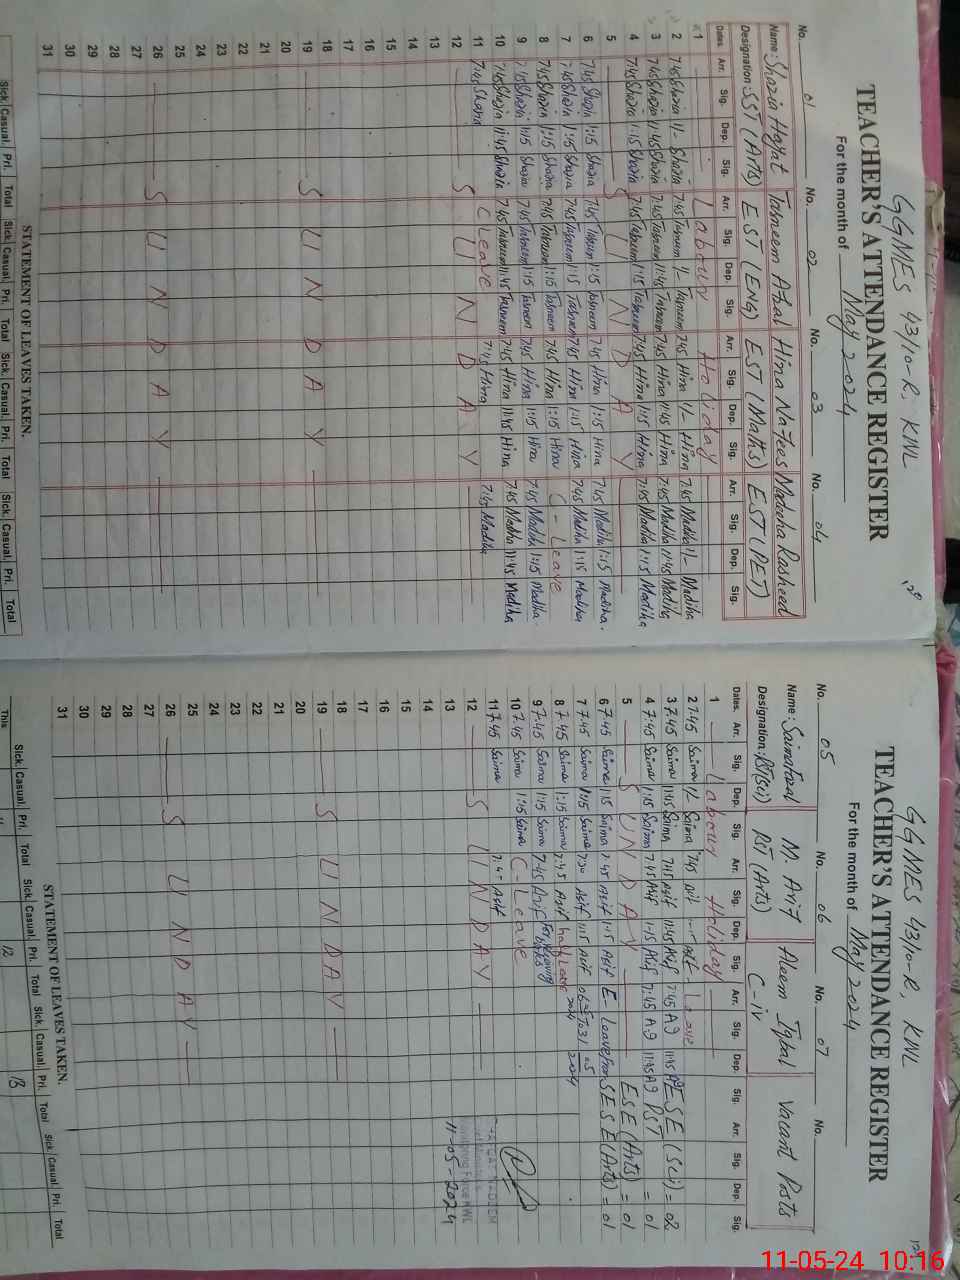 GGMES 43/10-R, KWL
TEACHER'S ATTENDANCE REGISTER
For the month of May 2024
No. 01 No. 02 No. 03 No. 04
Name: Shazia Hayat Tasneem Afzal Hina Nafees Madeeha Rasheed
Designation: SST (Arts) EST (ENG) EST (Maths) EST (PET)
Dates. Arr. Sig. Dep. Sig. Arr. Sig. Dep. Sig. Arr. Sig. Dep. Sig. Arr. Sig. Dep. Sig.
1 Labour Holiday
2 7:45 Shazia 11/- Shazia 7:45 Tasneem 11/- Tasneem 7:45 Hina 11/- Hina 7:45 Madiha 11/- Madiha
3 7:45 Shazia 11:45 Shazia 7:45 Tasneem 11:45 Tasneem 7:45 Hina 11:45 Hina 7:45 Madiha 11:45 Madiha
4 7:45 Shazia 1:15 Shazia 7:45 Tasneem 1:15 Tasneem 7:45 Hina 1:15 Hina 7:45 Madiha 1:15 Madiha
5 S U N D A Y
6 7:45 Shazia 1:15 Shazia 7:45 Tasneem 1:15 Tasneem 7:45 Hina 1:15 Hina 7:45 Madiha 1:15 Madiha
7 7:45 Shazia 1:15 Shazia 7:45 Tasneem 1:15 Tasneem 7:45 Hina 1:15 Hina 7:45 Madiha 1:15 Madiha
8 7:45 Shazia 1:15 Shazia 7:45 Tasneem 1:15 Tasneem 7:45 Hina 1:15 Hina C - Leave
9 7:45 Shazia 1:15 Shazia 7:45 Tasneem 1:15 Tasneem 7:45 Hina 1:15 Hina 7:45 Madiha 1:15 Madiha
10 7:45 Shazia 11:45 Shazia 7:45 Tasneem 11:45 Tasneem 7:45 Hina 11:45 Hina 7:45 Madiha 11:45 Madiha
11 7:45 Shazia C Leave 7:45 Hina 7:45 Madiha
12 S U N D A Y
13
14
15
16
17
18
19 S U N D A Y
20
21
22
23
24
25
26 S U N D A Y
27
28
29
30
31
STATEMENT OF LEAVES TAKEN.
Sick. Casual. Pri. Total Sick. Casual. Pri. Total Sick. Casual. Pri. Total Sick. Casual. Pri. Total
GGMES 43/10-R, KWL
TEACHER'S ATTENDANCE REGISTER
For the month of May 2024
No. 05 No. 06 No. 07 No.
Name: M. Arif Aleem Iqbal Vacant Posts
Designation: EST (Arts) C-iv
Dates. Arr. Sig. Dep. Sig. Arr. Sig. Dep. Sig. Arr. Sig. Dep. Sig. Arr. Sig. Dep. Sig.
1 Labour Holiday
2 7:45 Saima 11/- Saima 7:45 Leave
3 7:45 Saima 11:45 Saima 11:45 ESE (Sci) = 02
4 7:45 Saima 1:15 Saima 7:45 1:15 7:45 11:45 = 01
5 S U N D A Y ESE (Arts) = 01
6 7:45 Saima 1:15 Saima 7:45 1:15 E - Leave from SESE (Arts) = 01
7 7:45 Saima 1:15 Saima 1:15 To 31
8 7:45 Saima 1:15 Saima 7:45 half Leave 2024
9 7:45 Saima 1:15 Saima 7:45
10 7:45 Saima 1:15 Saima C - Leave
11 7:45 Saima
12 S U N D A Y
13 11-05-2024
14
15
16
17
18
19 S U N D A Y
20
21
22
23
24
25
26 S U N D A Y
27
28
29
30
31
STATEMENT OF LEAVES TAKEN.
Sick. Casual. Pri. Total Sick. Casual. Pri. Total Sick. Casual. Pri. Total Sick. Casual. Pri. Total
This 12 13
11-05-24 10:16